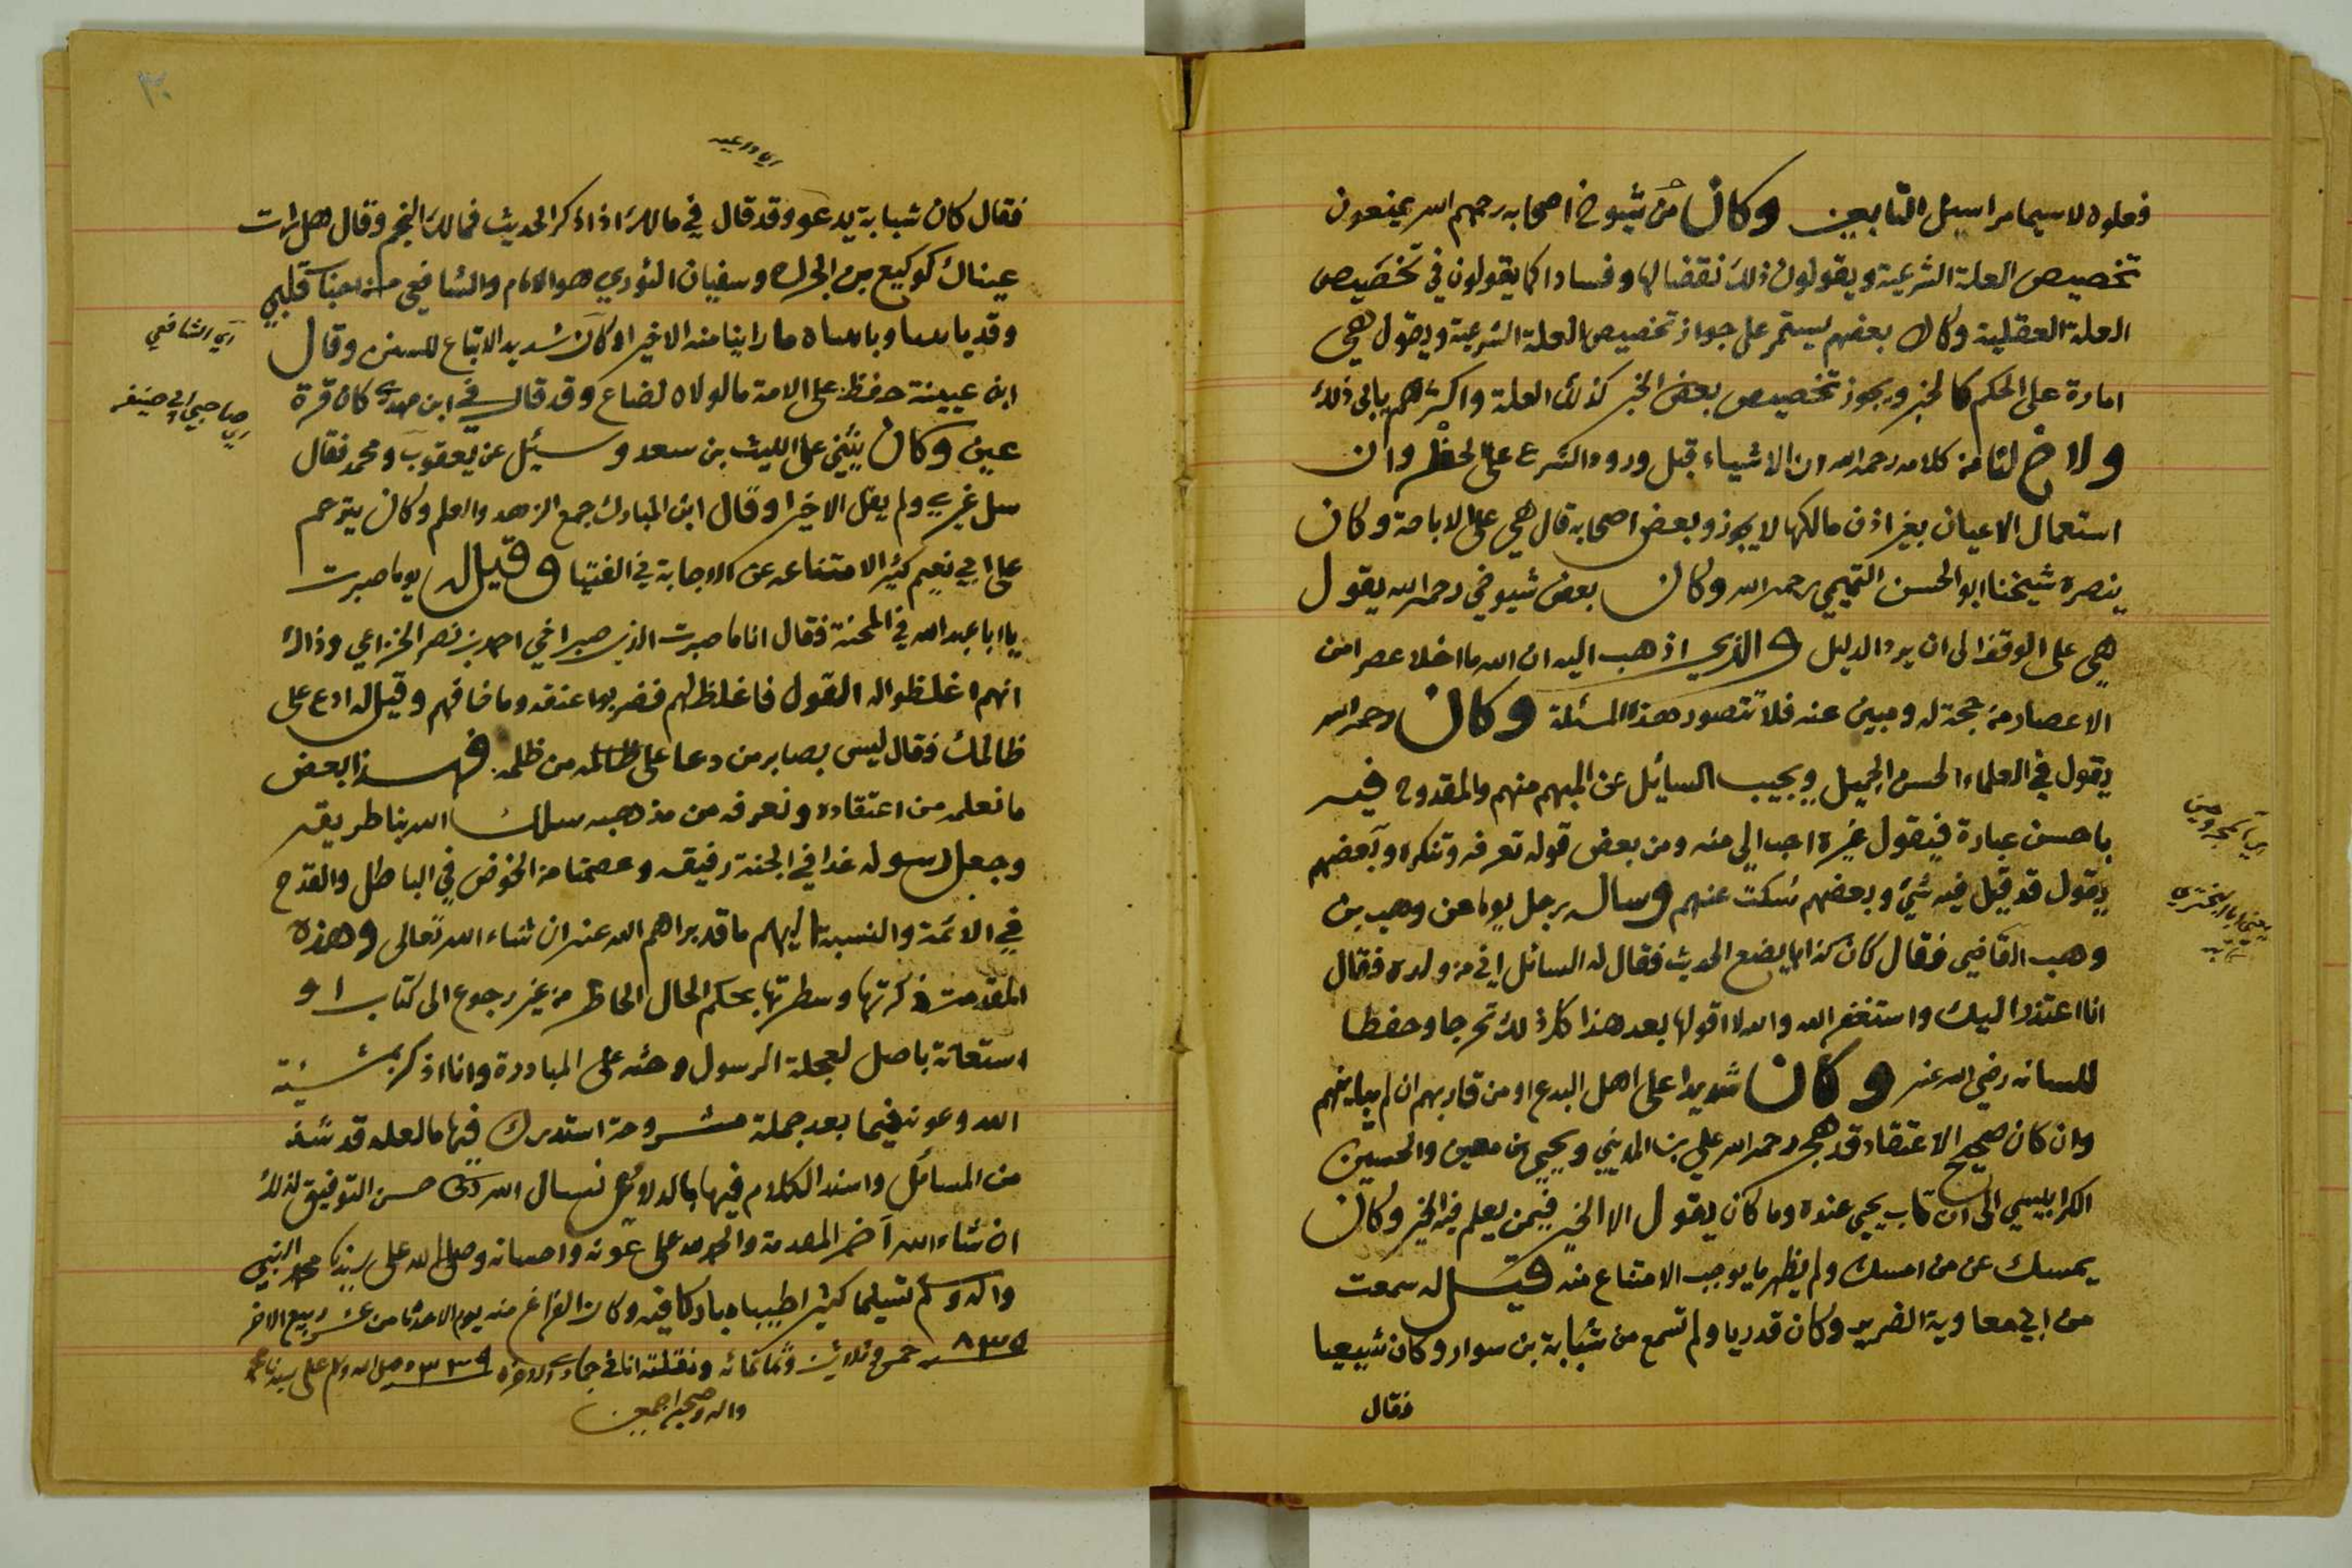 فعلوه لاسيما مراسيل التابعين وكان من شيوخ اصحابه رحمهم الله يمنعون
تخصيص العلة الشرعية ويقولون ذلك نقضا لها وفسادا كما يقولون في تخصيص
العلة العقلية وكان بعضهم يستمر على جواز تخصيص العلة الشرعية ويقول هي
امارة على الحكم كالخبر ويجوز تخصيص بعض الخبر كذلك العلة واكثرهم يابى ذلك
ولاح لنا من كلامه رحمه الله ان الاشياء قبل ورود الشرع على الحظر وان
استعمال الاعيان بغير اذن مالكها لا يجوز وبعض اصحابه قال هي على الاباحة وكان
ينصره شيخنا ابو الحسن التميمي رحمه الله وكان بعض شيوخي رحمه الله يقول
هي على الوقف الى ان يرد الدليل والذي اذهب اليه ان الله ما اخلا عصرا من
الاعصار من حجة له ومبين عنه فلا تتصور هذه المسئلة وكان رحمه الله
يقول في العلماء الحسن الجميل ويجيب السائل عن المبهم منهم والمقدوح فيه
باحسن عبارة فيقول غيره احب الي منه ومن بعض قوله تعرفه وتنكره وبعضهم
يقول قد قيل فيه شيئ وبعضهم سكت عنهم وساله رجل يوما عن وهب بن
وهب القاضي فقال كان كذابا يضع الحديث فقال له السائل اني من ولده فقال
انا اعتذر اليك واستغفر الله والله لا اقولها بعد هذا كل ذلك تحرجا وحفظا
للسانه رضي الله عنه وكان شديدا على اهل البدع او من قاربهم ان لم يباينهم
وان كان صحيح الاعتقاد قد هجر رحمه الله علي بن المديني ويحيى بن معين والحسين
الكرابيسي الى ان تاب يحيى عنده وما كان يقول الا الخير فيمن يعلم فيه الخير وكان
يمسك عن من امسك ولم يظهر ما يوجب الامتناع منه قيل له سمعت
من ابي معاوية الضرير وكان قدريا ولم تسمع من شبابة بن سوار وكان شيعيا
فقال
فقال كان شبابة يدعو وقد قال في مالك اذا ذكر الحديث فمالك النجم وقال هل رات
عيناك كوكيع بن الجراح وسفيان الثوري هو الامام والشافعي من احبا قلبي
وقد ما راينا منه الا خيرا وكان شديد الاتباع للسنن وقال
اي الشافعي
ابن عيينة حفظ على الامة ما لولاه لضاع وقد قال في ابن مهدي كان قرة
اي صاحبي ابي حنيفه
عين وكان يثني على الليث بن سعد وسئل عن يعقوب ومحمد فقال
سل غيري ولم يقل الا خيرا وقال ابن المبارك جمع الزهد والعلم وكان يترحم
على ابي نعيم كثيرا لامتناعه عن الاجابة في الفتيا وقيل له يوما صبرت
يا ابا عبد الله في المحنة فقال انا ما صبرت الذي صبر اخي احمد بن نصر الخزاعي وذاك
انهم اغلظوا له القول فاغلظ لهم فضربوا عنقه وما خافهم وقيل له ادع على
ظالمك فقال ليس بصابر من دعا على ظالمه من ظلمه فهذا بعض
ما نعلمه من اعتقاده ونعرفه من مذهبه سلك الله بنا طريقه
وجعل رسوله غدا في الجنة رفيقه وعصمنا من الخوض في الباطل والقدح
في الائمة والنسبة اليهم ما قد براهم الله عنه ان شاء الله تعالى وهذه
المقدمة ذكرتها وسطرتها بحكم الحال الحاظر من غير رجوع الى كتاب او
استعانة باصل لعجلة الرسول وحثه على المبادرة وانا اذكر بمشيئة
الله وعونه فيما بعد جملة مشروحة استدرك فيها ما لعله قد شذ
من المسائل واسند الكلام فيها بالدلائل نسال الله حسن التوفيق لذلك
ان شاء الله آخر المقدمة والحمد لله على عونه واحسانه وصلى الله على سيدنا محمد النبي
واله وسلم تسليما كثيرا طيبا مباركا فيه وكان الفراغ منه يوم الاحد ثامن عشر ربيع الاخر
٨٣٥ خمس وثلاثين وثمانمائه ونقلته انا في جمادى الاخرة وصلى الله وسلم على سيدنا محمد
واله وصحبه اجمعين